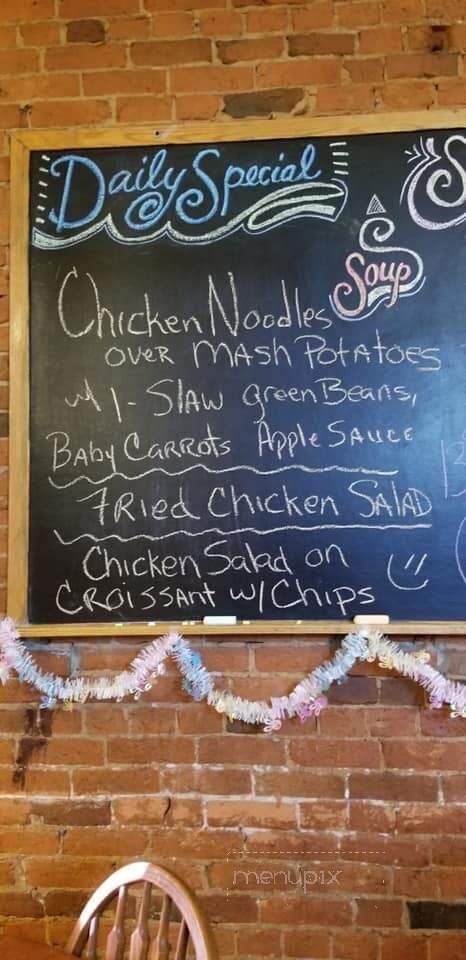 Daily Special
Soup
Chicken Noodles
over Mash Potatoes
w/ 1 - Slaw green Beans,
Baby Carrots Apple Sauce
Fried Chicken Salad
Chicken Salad on
Croissant w/ Chips
menupix